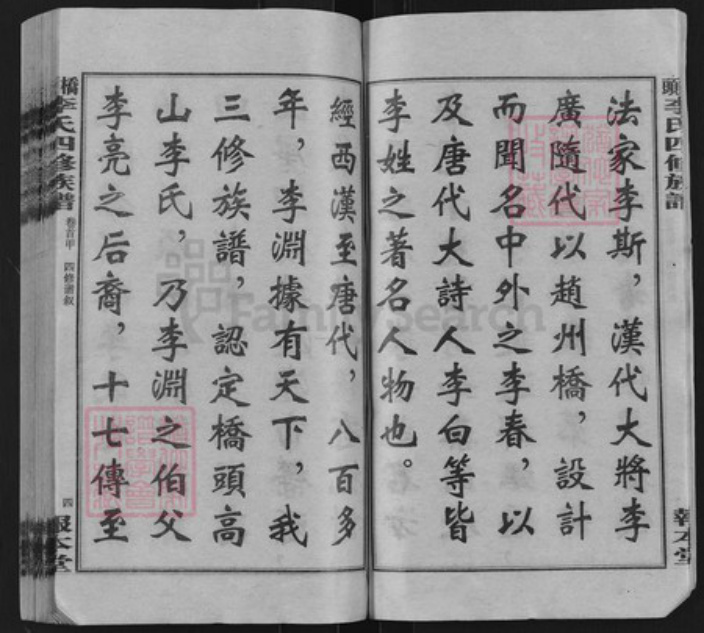 頭李氏四修族譜
報本堂
法家李斯，漢代大將李
廣隨代以趙州橋，設計
而聞名中外之李春，以
及唐代大詩人李白等皆
李姓之著名人物也。
經西漢至唐代，八百多
年，李淵據有天下，我
三修族譜，認定橋頭高
山李氏，乃李淵之伯父
李亮之后裔，十七傳至
橋李氏四修族譜
卷首甲
四
報本堂
FamilySearch